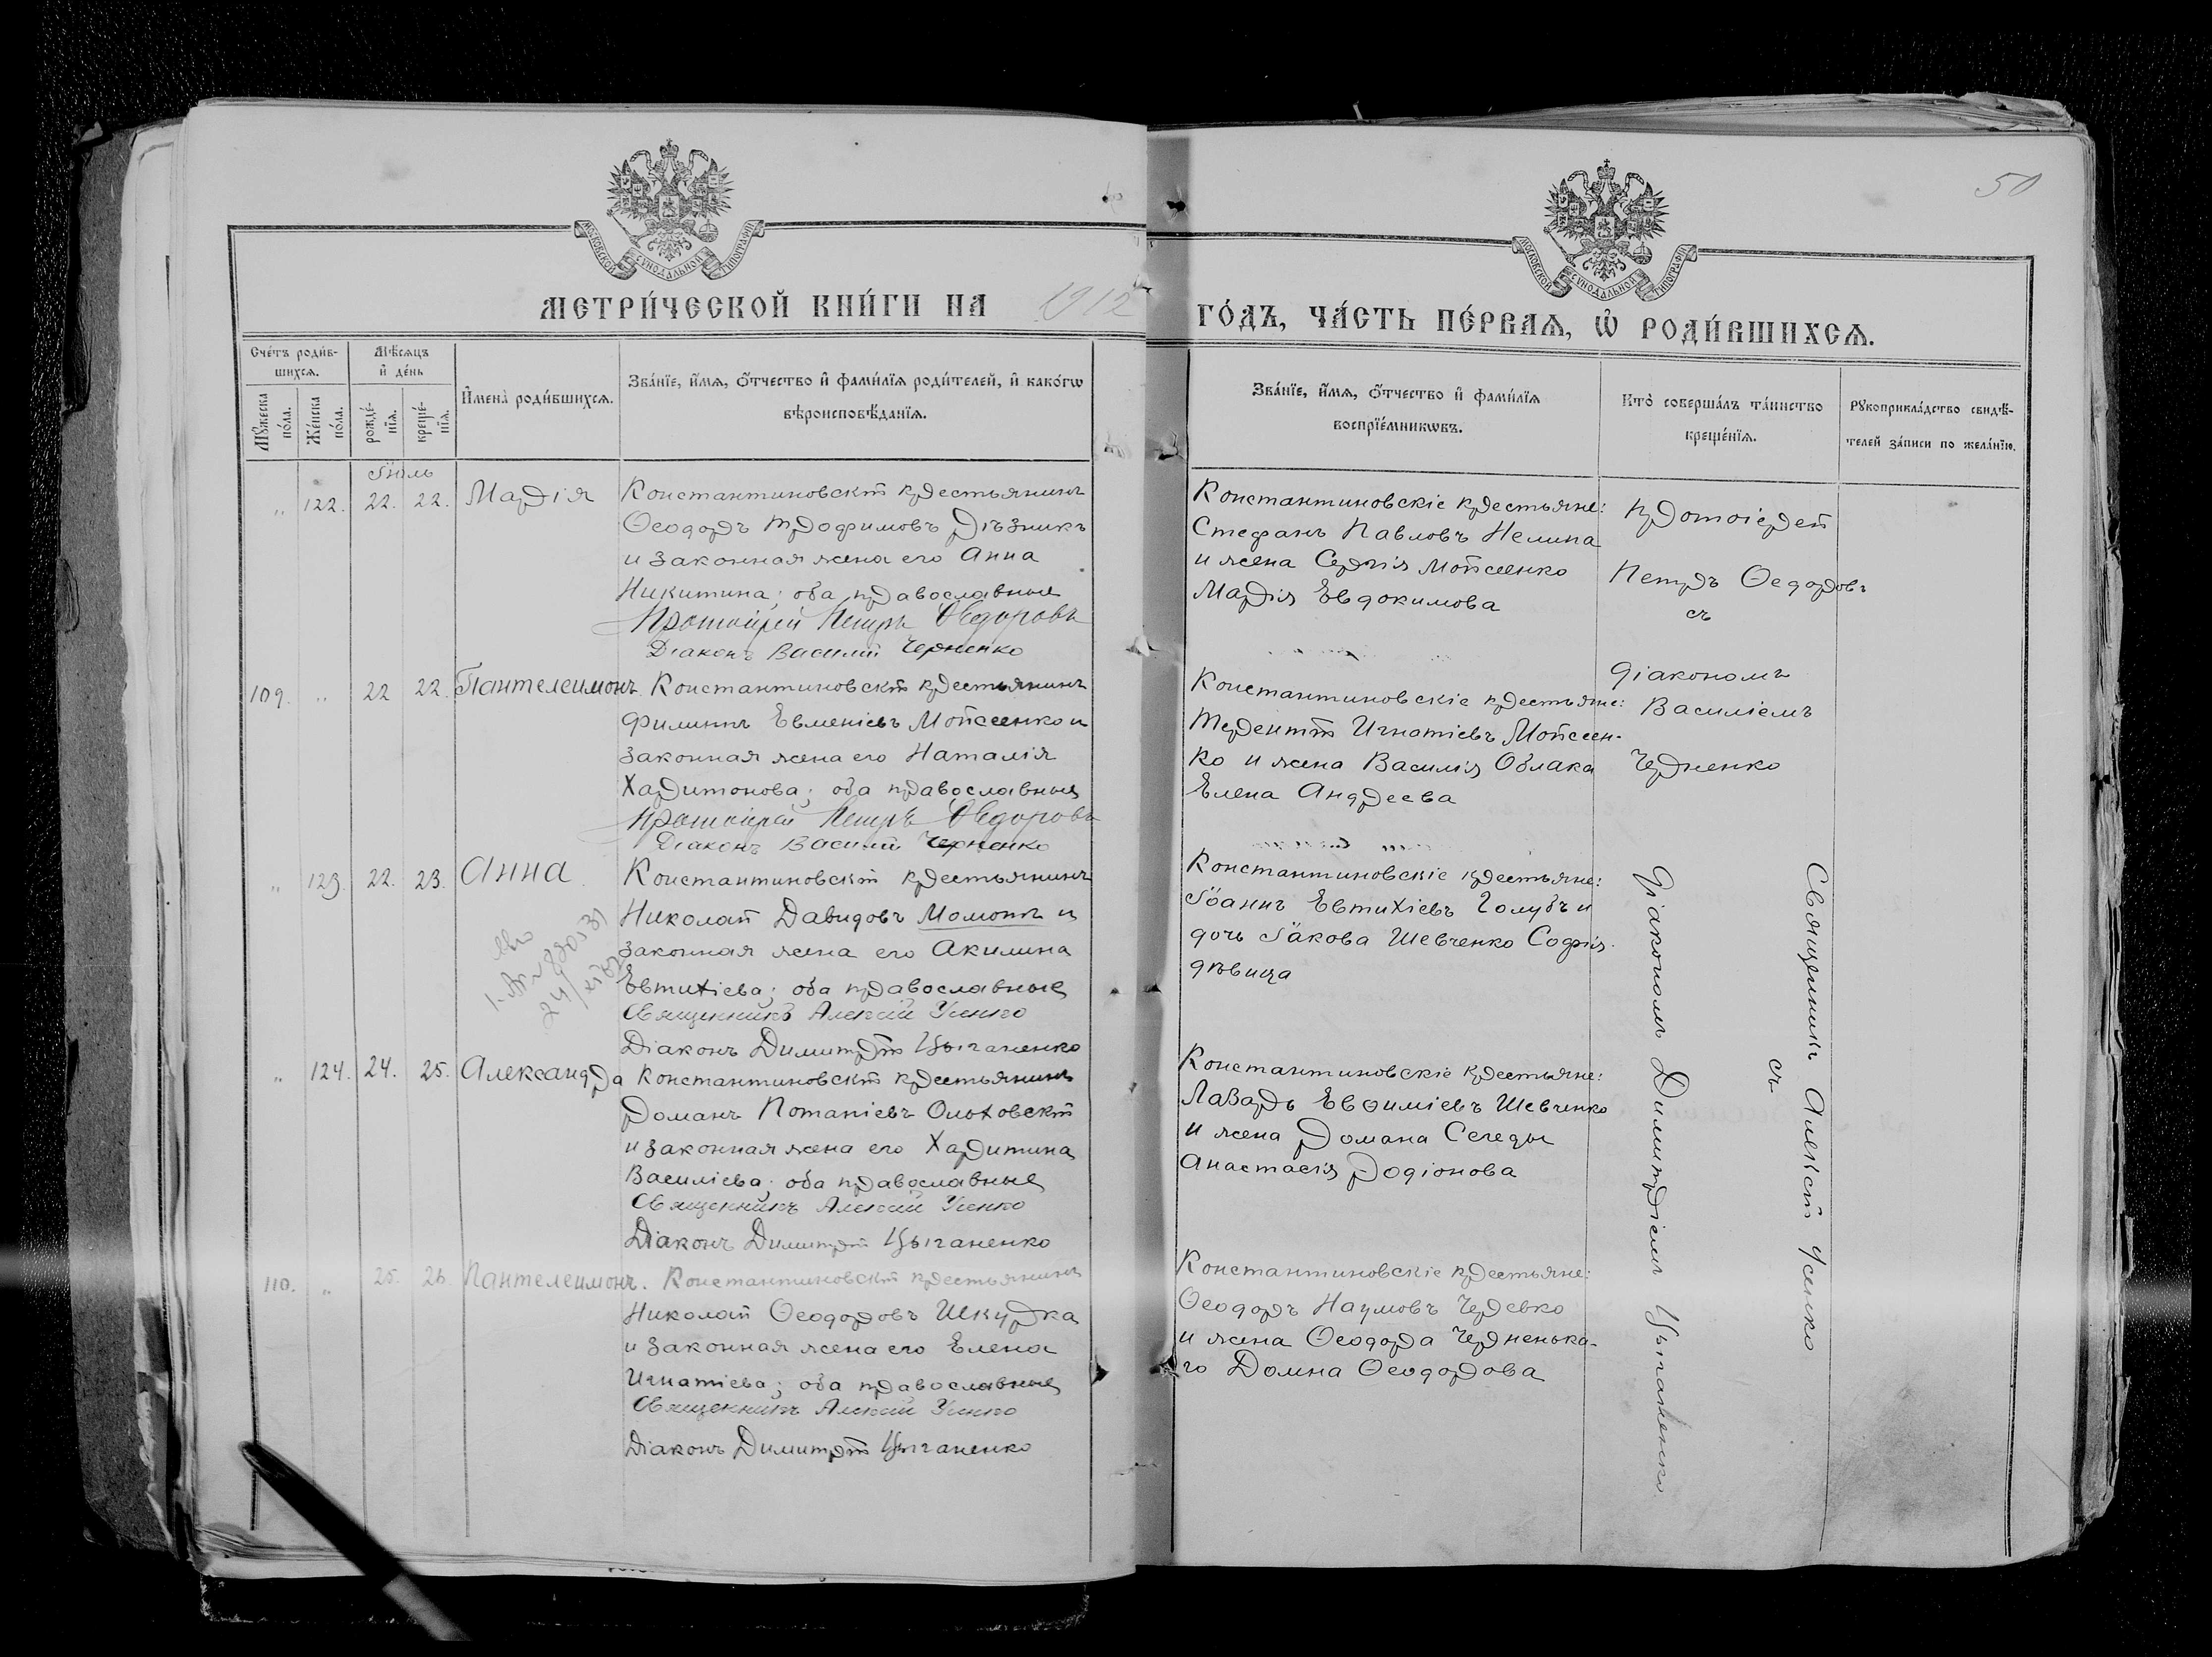 50
МОСКОВСКОЙ СѴНОДАЛЬНОЙ ТИПОГРАФІИ
МОСКОВСКОЙ СѴНОДАЛЬНОЙ ТИПОГРАФІИ
МЕТРИ́ЧЕСКОЙ КНИ́ГИ НА 1912
ГО́ДЪ, ЧА́СТЬ ПЕ́РВАѦ, Ѡ҆ РОДИ́ВШИХСѦ.
Сче́тъ роди́в-
шихсѧ.
Мѣ́сѧцъ
и҆ де́нь
Мꙋ́жеска
по́ла.
Же́нска
по́ла.
рожде́-
нїѧ.
креще́-
нїѧ.
И҆мена̀ роди́вшихсѧ.
Зва́нїе, и҆́мѧ, ѻ҆́тчество и҆ фами́лїѧ роди́телей, и҆ како́гѡ
вѣроисповѣ́данїѧ.
Зва́нїе, и҆́мѧ, ѻ҆́тчество и҆ фами́лїѧ
воспрїе́мникѡвъ.
Кто̀ соверша́лъ та́инство
креще́нїѧ.
Рꙋкоприкла́дство свидѣ́-
телей за́писи по жела́нїю.
Іюль
„ 122. 22. 22. Марія
Константиновскій крестьянинъ
Ѳеодоръ Трофимовъ Рѣзникъ
и законная жена его Анна
Никитина; оба православные
Протоіерей Петръ Ѳедоровъ
Діаконъ Василій Черненко
Константиновскіе крестьяне:
Стефанъ Павловъ Нелипа
и жена Сергія Мойсеенко
Марія Евдокимова
Протоіерей
Петръ Ѳедоровъ
съ
діакономъ
Василіемъ
Черненко
109. „ 22 22. Пантелеимонъ.
Константиновскій крестьянинъ
Филиппъ Евменіевъ Мойсеенко и
законная жена его Наталія
Харитонова; оба православные
Протоіерей Петръ Ѳедоровъ
Діаконъ Василій Черненко
Константиновскіе крестьяне:
Терентій Игнатіевъ Мойсеен-
ко и жена Василія Облака
Елена Андреева
„ 123. 22. 23. Анна
Константиновскій крестьянинъ
Николай Давидовъ Момотъ и
законная жена его Акилина
Евтихіева; оба православные
Священникъ Алексій Усенко
Діаконъ Димитрій Цыганенко
Константиновскіе крестьяне:
Іоаннъ Евтихіевъ Голубъ и
дочь Іакова Шевченко Софія
дѣвица
Священникъ Алексій Усенко
съ
діакономъ Димитріемъ Цыганенко
„ 124. 24. 25. Александра
Константиновскій крестьянинъ
Романъ Потапіевъ Ольховскій
и законная жена его Харитина
Василіева; оба православные
Священникъ Алексій Усенко
Діаконъ Димитрій Цыганенко
Константиновскіе крестьяне:
Лазарь Евѳиміевъ Шевченко
и жена Романа Сегеды
Анастасія Родіонова
110. „ 25. 26. Пантелеимонъ.
Константиновскій крестьянинъ
Николай Ѳеодоровъ Шкурка
и законная жена его Елена
Игнатіева; оба православные
Священникъ Алексій Усенко
Діаконъ Димитрій Цыганенко
Константиновскіе крестьяне:
Ѳеодоръ Наумовъ Черевко
и жена Ѳеодора Черненька-
го Домна Ѳеодорова